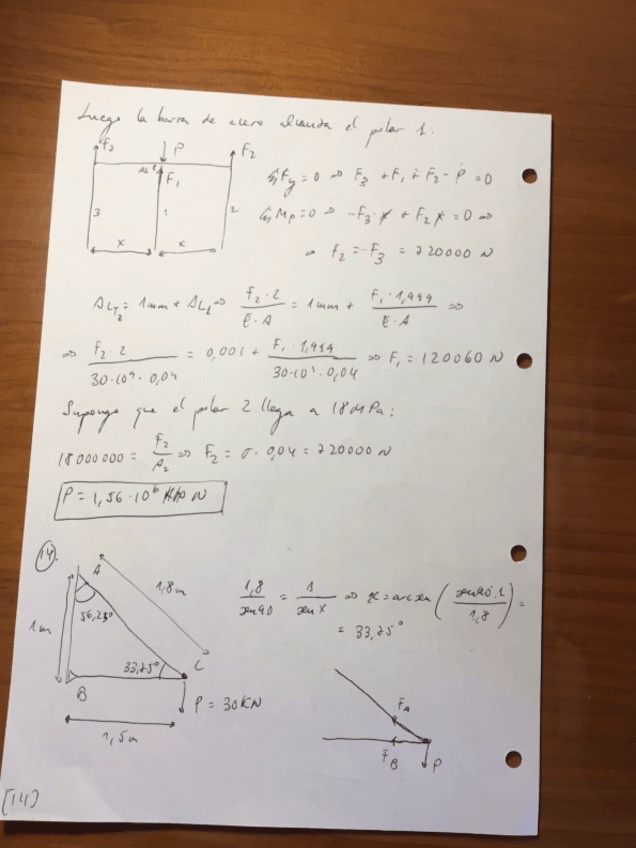 Luego la barra de acero alcanza el pilar 1.
F₃ P F₂
F₁
3 1 2
x x
ΣFy = 0 ⇒ F₃ + F₁ + F₂ - P = 0
ΣMp = 0 ⇒ -F₃·x + F₂ x = 0 ⇒
⇒ F₂ = F₃ = 720000 N
ΔL_T₂ = 1mm + ΔL₁ ⇒ F₂·2 / E·A = 1mm + F₁·1,999 / E·A ⇒
⇒ F₂·2 / 30·10⁹·0,04 = 0,001 + F₁·1,999 / 30·10⁹·0,04 ⇒ F₁ = 120060 N
Supongo que el pilar 2 llega a 18MPa:
18000000 = F₂ / A₂ ⇒ F₂ = σ·0,04 = 720000 N
P = 1,56·10⁶ N
14.
A
1,8m
56,25º
1m
33,75º
C
B
P = 30KN
1,5m
1,8 / sen90 = 1 / senx ⇒ x = arcsen ( sen90·1 / 1,8 ) =
= 33,75º
F_A
F_B P
[14]